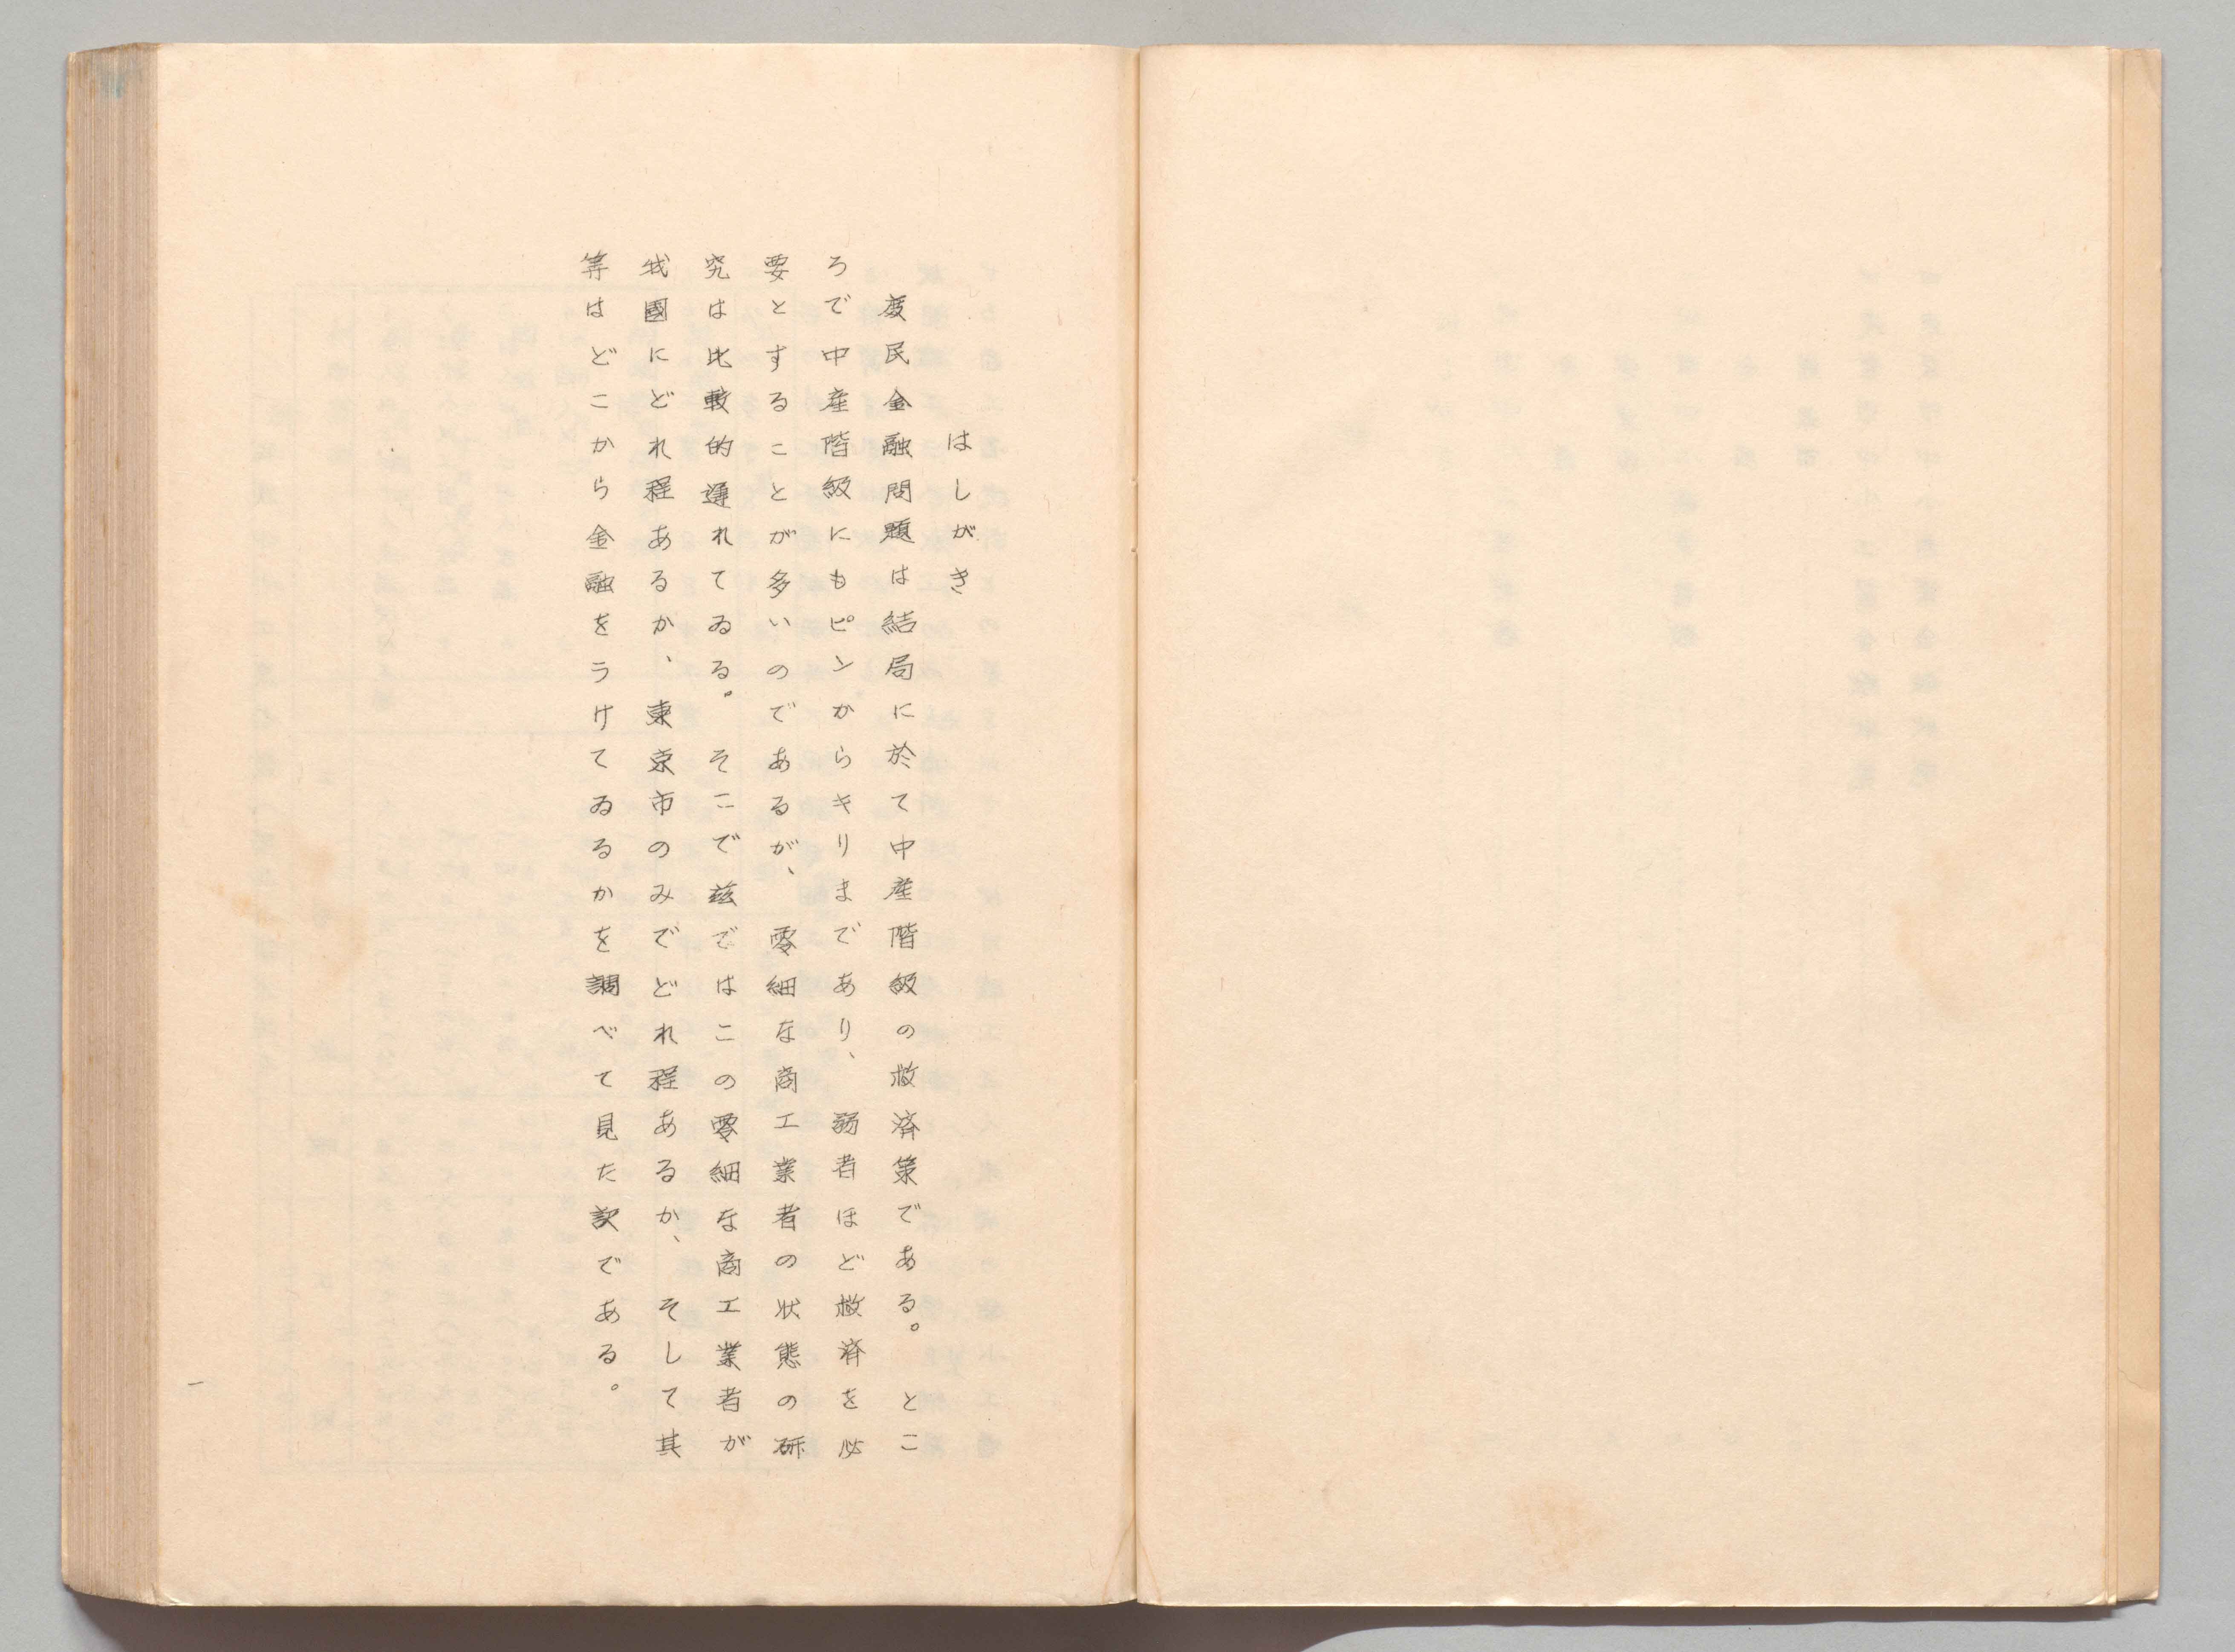 はしがき
庶民金融問題は結局に於て中産階級の救済策である。とこ
ろで中産階級にもピンからキリまであり、弱者ほど救済を必
要とすることが多いのであるが、零細な商工業者の状態の研
究は比較的遅れてゐる。そこで茲ではこの零細な商工業者が
我國にどれ程あるか、東京市のみでどれ程あるか、そして其
等はどこから金融をうけてゐるかを調べて見た訳である。
一